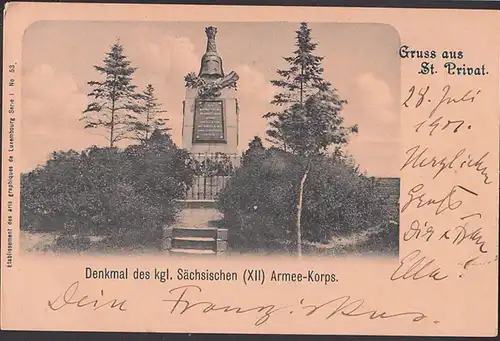 Gruss aus
St. Privat.
28. Juli
1901.
Herzlicher
Gruß
Dir u. Frau
Ella!
Etablissement des arts graphiques de Luxembourg Serie I No 53.
Denkmal des kgl. Sächsischen (XII) Armee-Korps.
Dein Franz